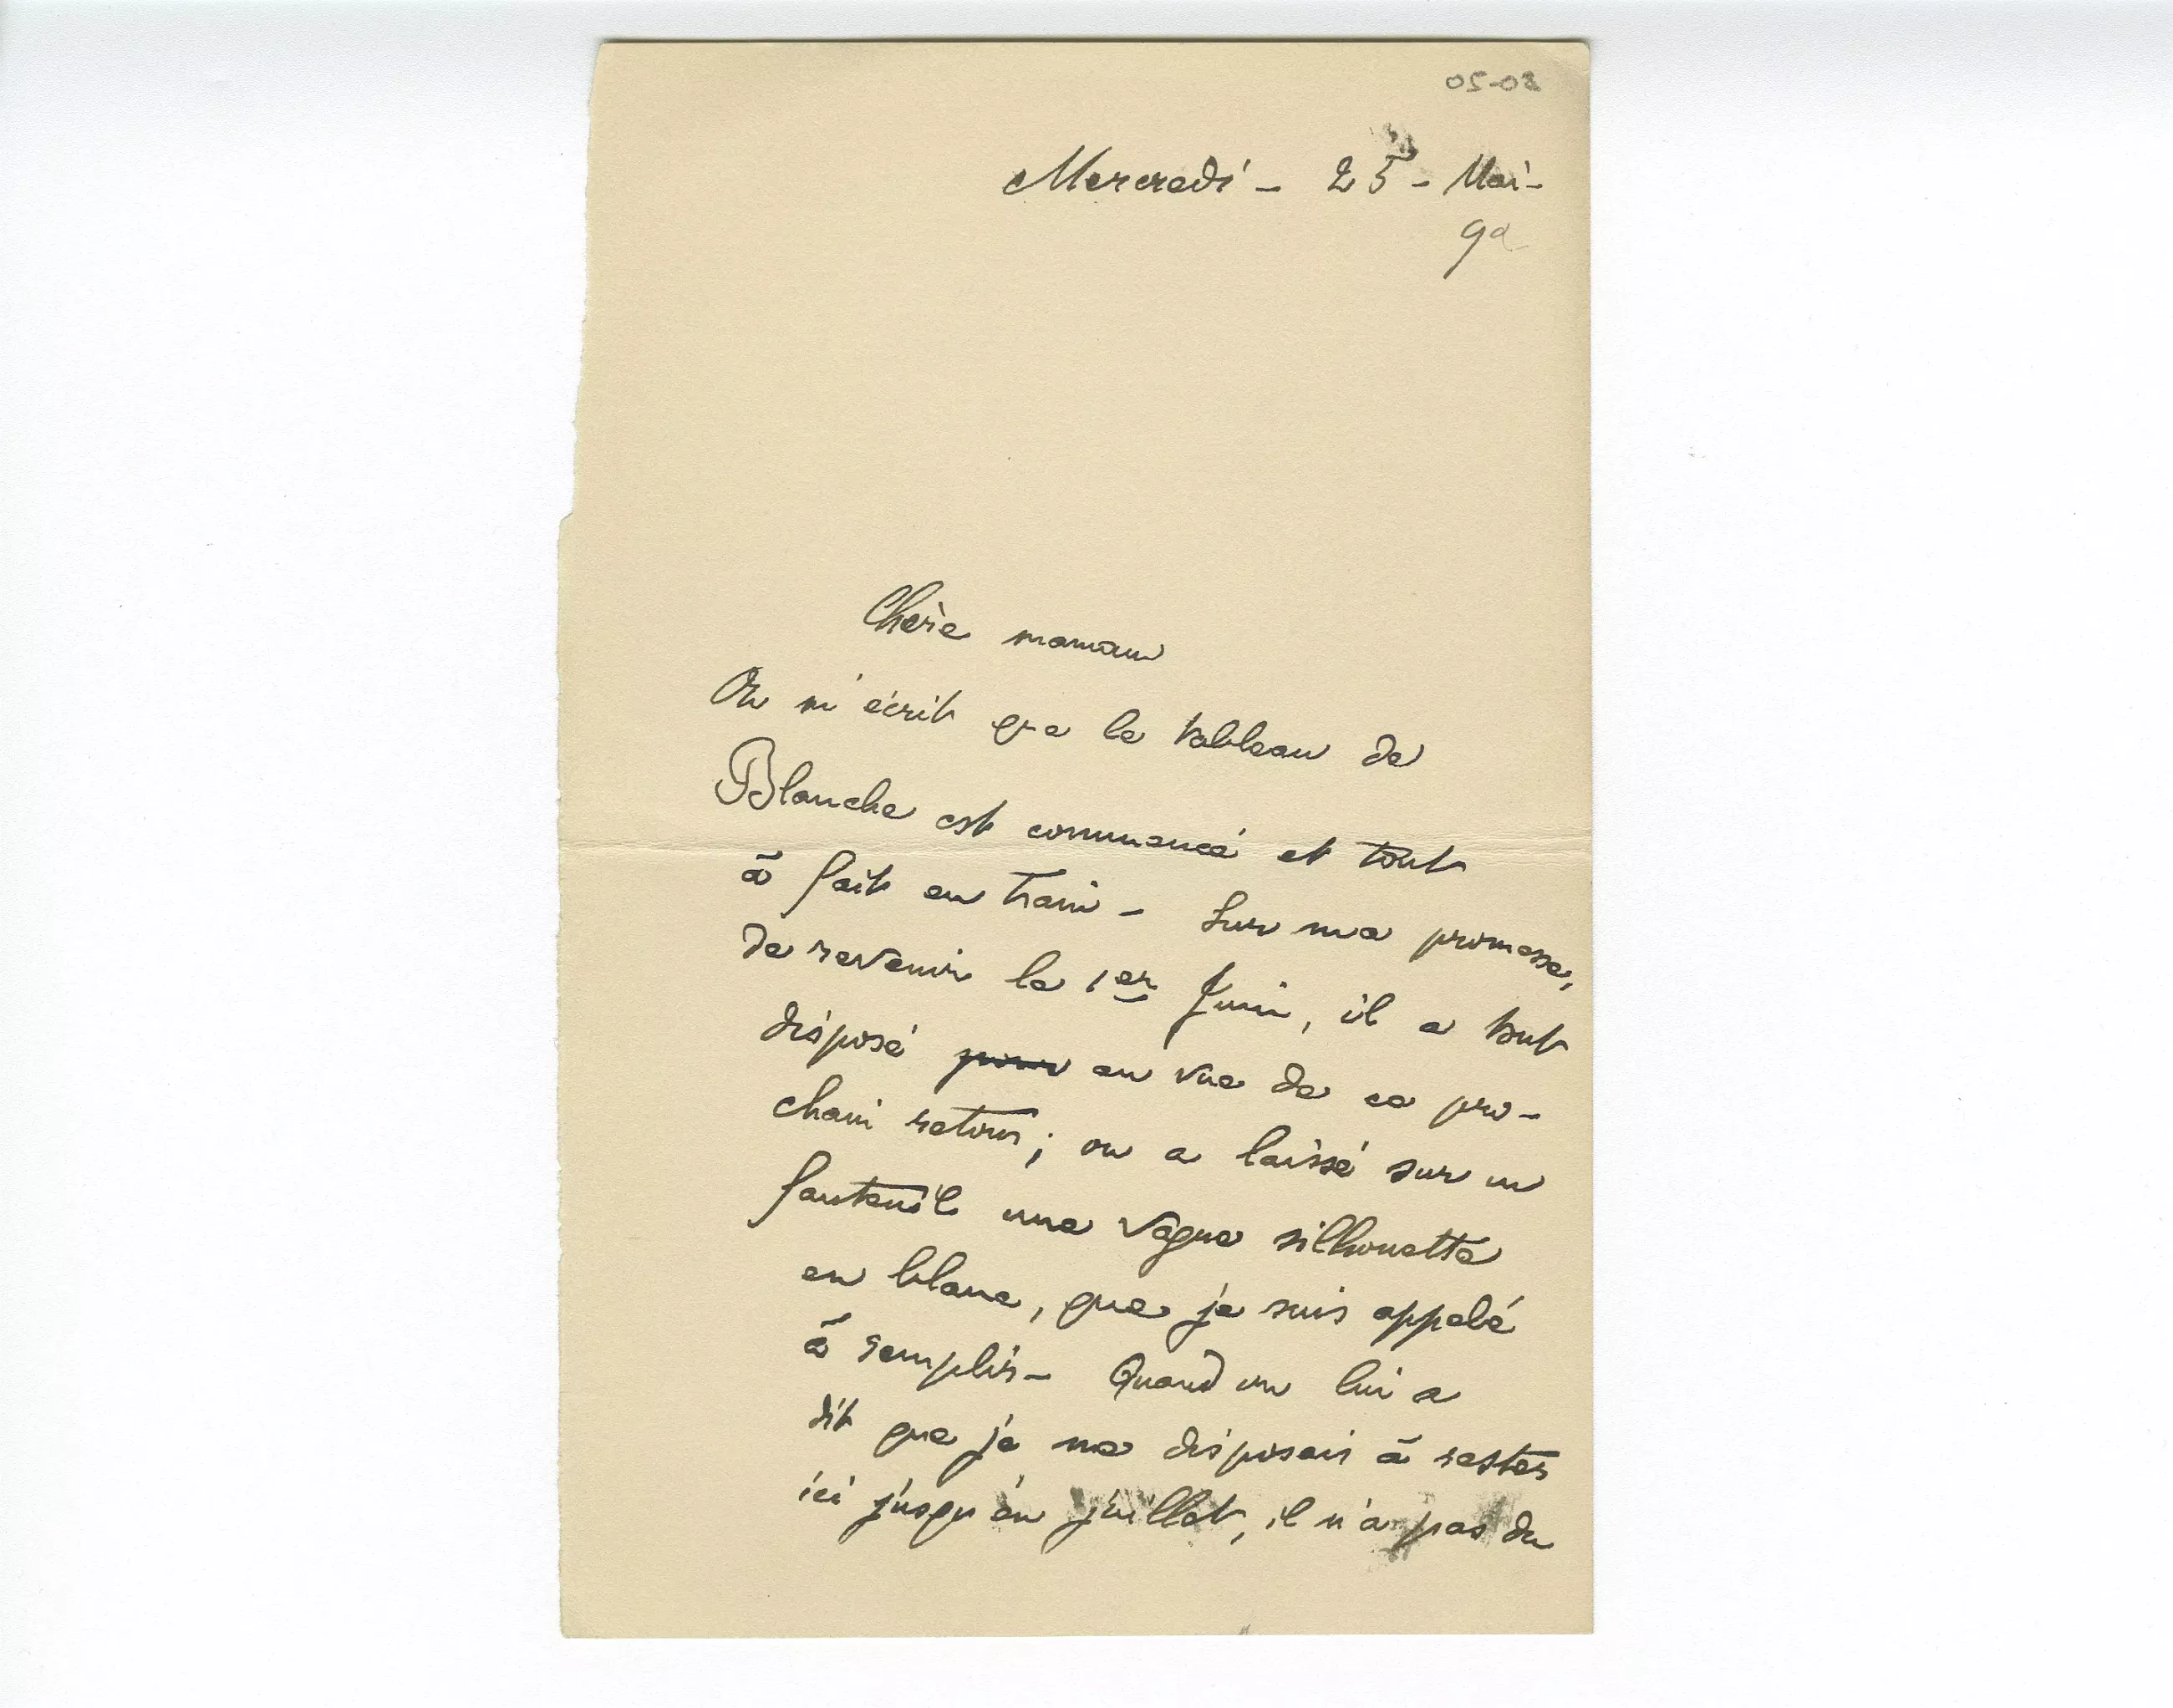 05-08
Mercredi - 25 - Mai -
92
Chère maman
On m'écrit que le tableau de
Blanche est commencé et tout
à fait en train - Sur ma promesse,
de revenir le 1er Juin, il a tout
disposé pour en vue de ce pro-
chain retour ; on a laissé sur un
fauteuil une vague silhouette
en blanc, que je suis appelé
à remplir - Quand on lui a
dit que je me disposais à rester
ici jusqu'en juillet, il n'a pas du